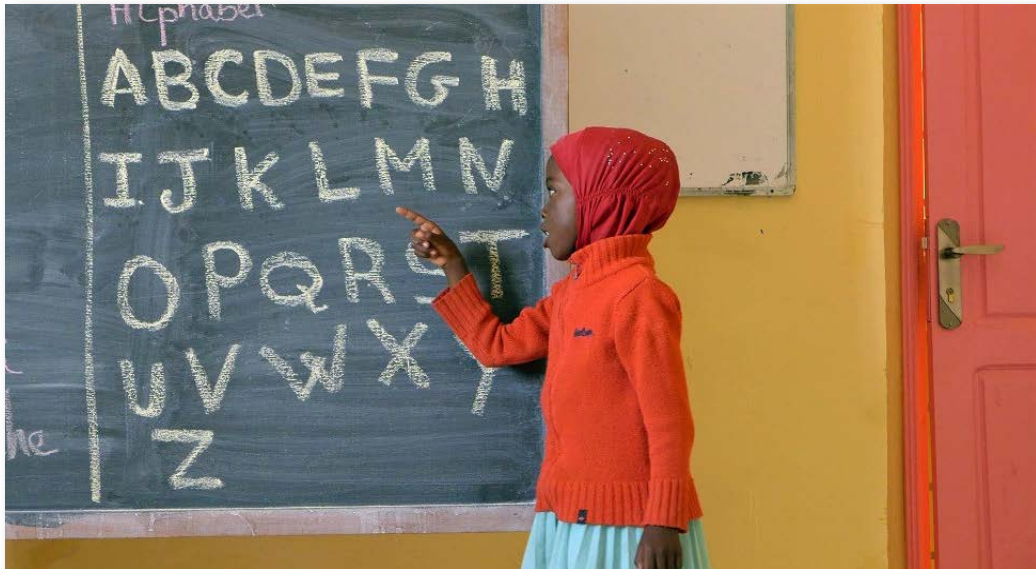 Alphabet
A B C D E F G H
I J K L M N
O P Q R S T
U V W X Y
Z
he